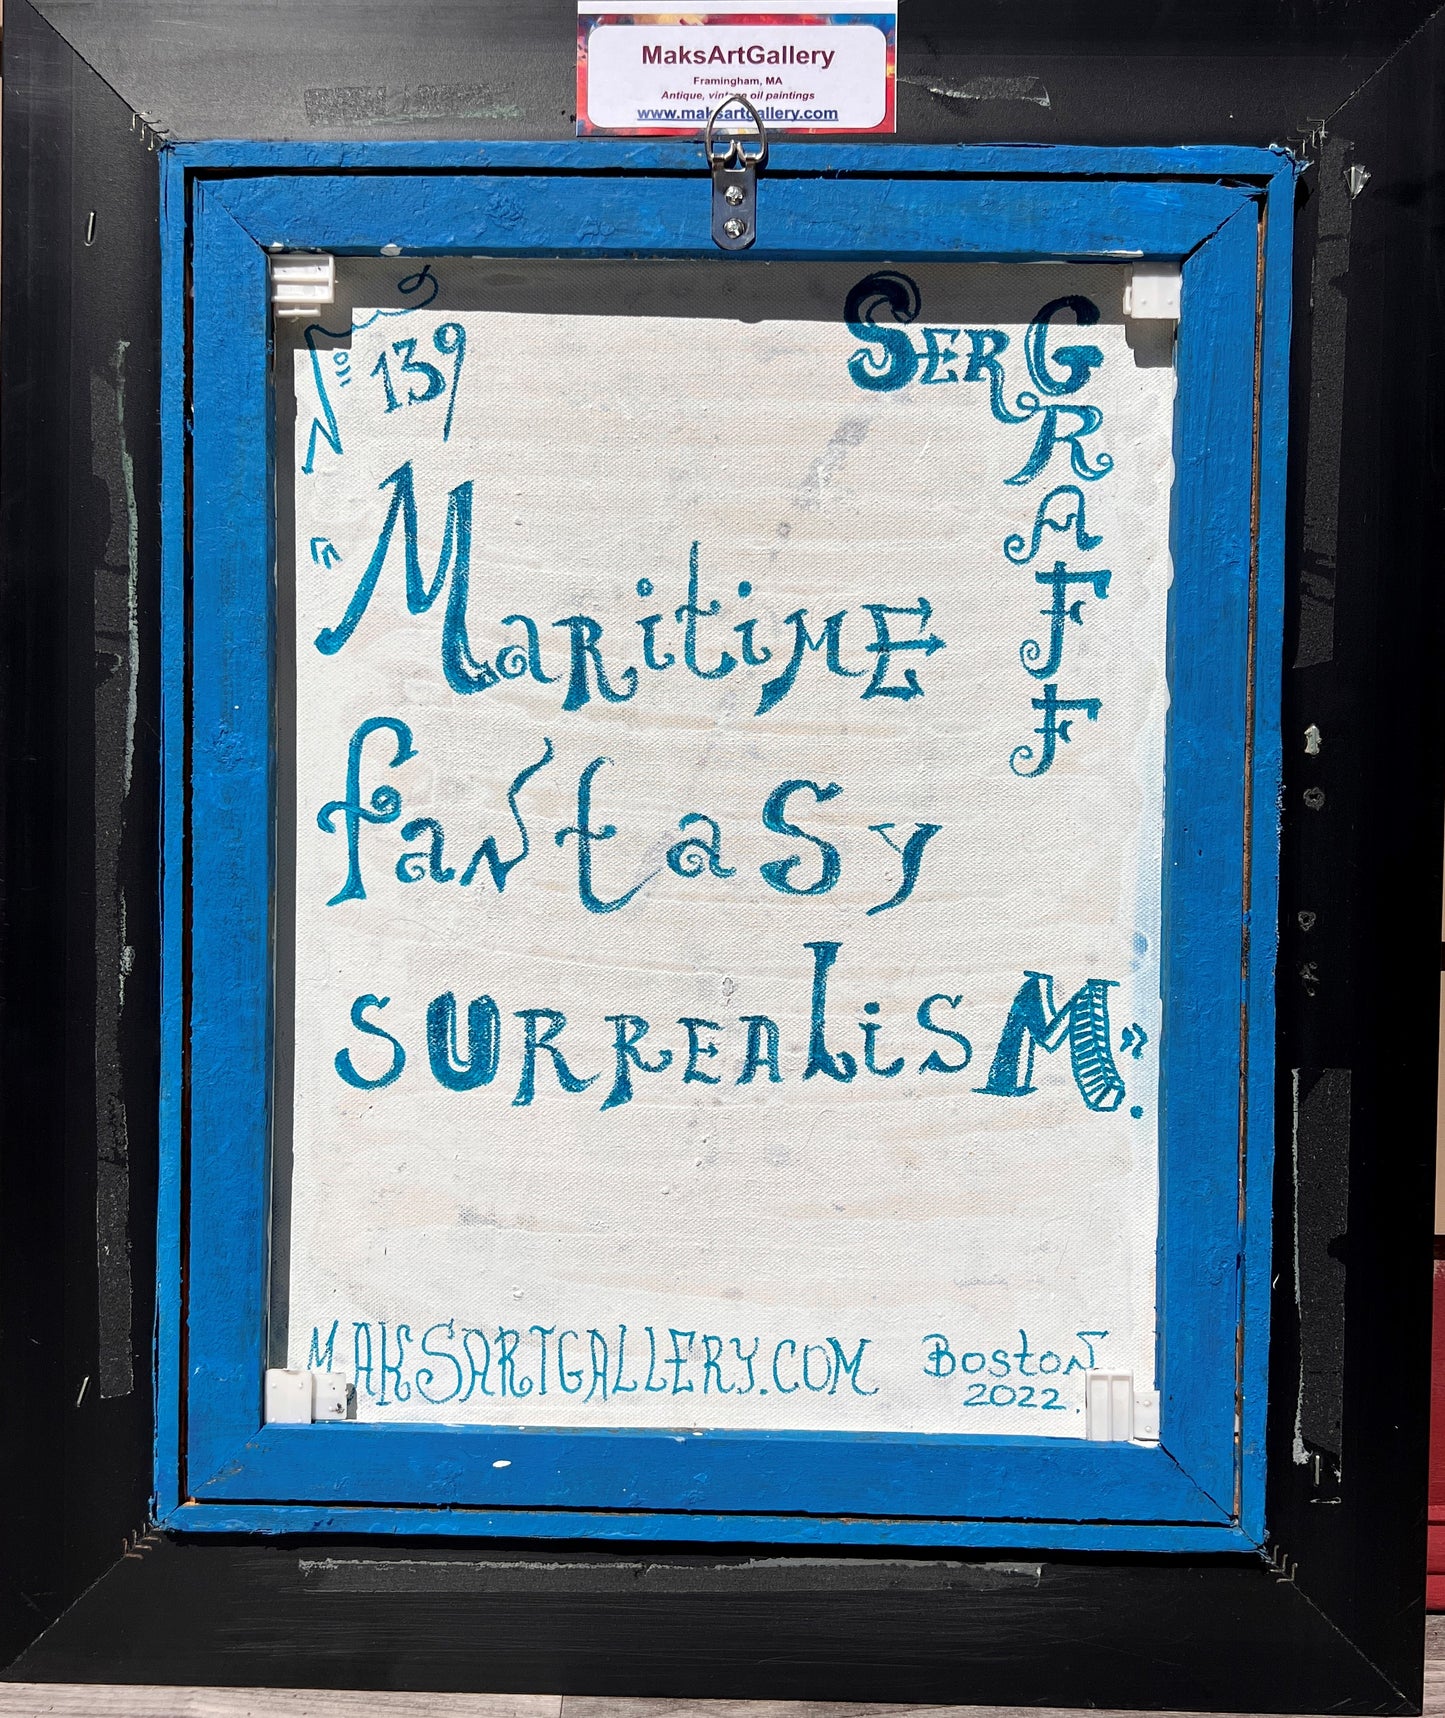 MaksArtGallery
Framingham, MA
Antique, vintage oil paintings
www.maksartgallery.com
№ 139
SerGRAFF
«Maritime
fantasy
surrealism.»
MAKSARTGALLERY.COM
Boston
2022.